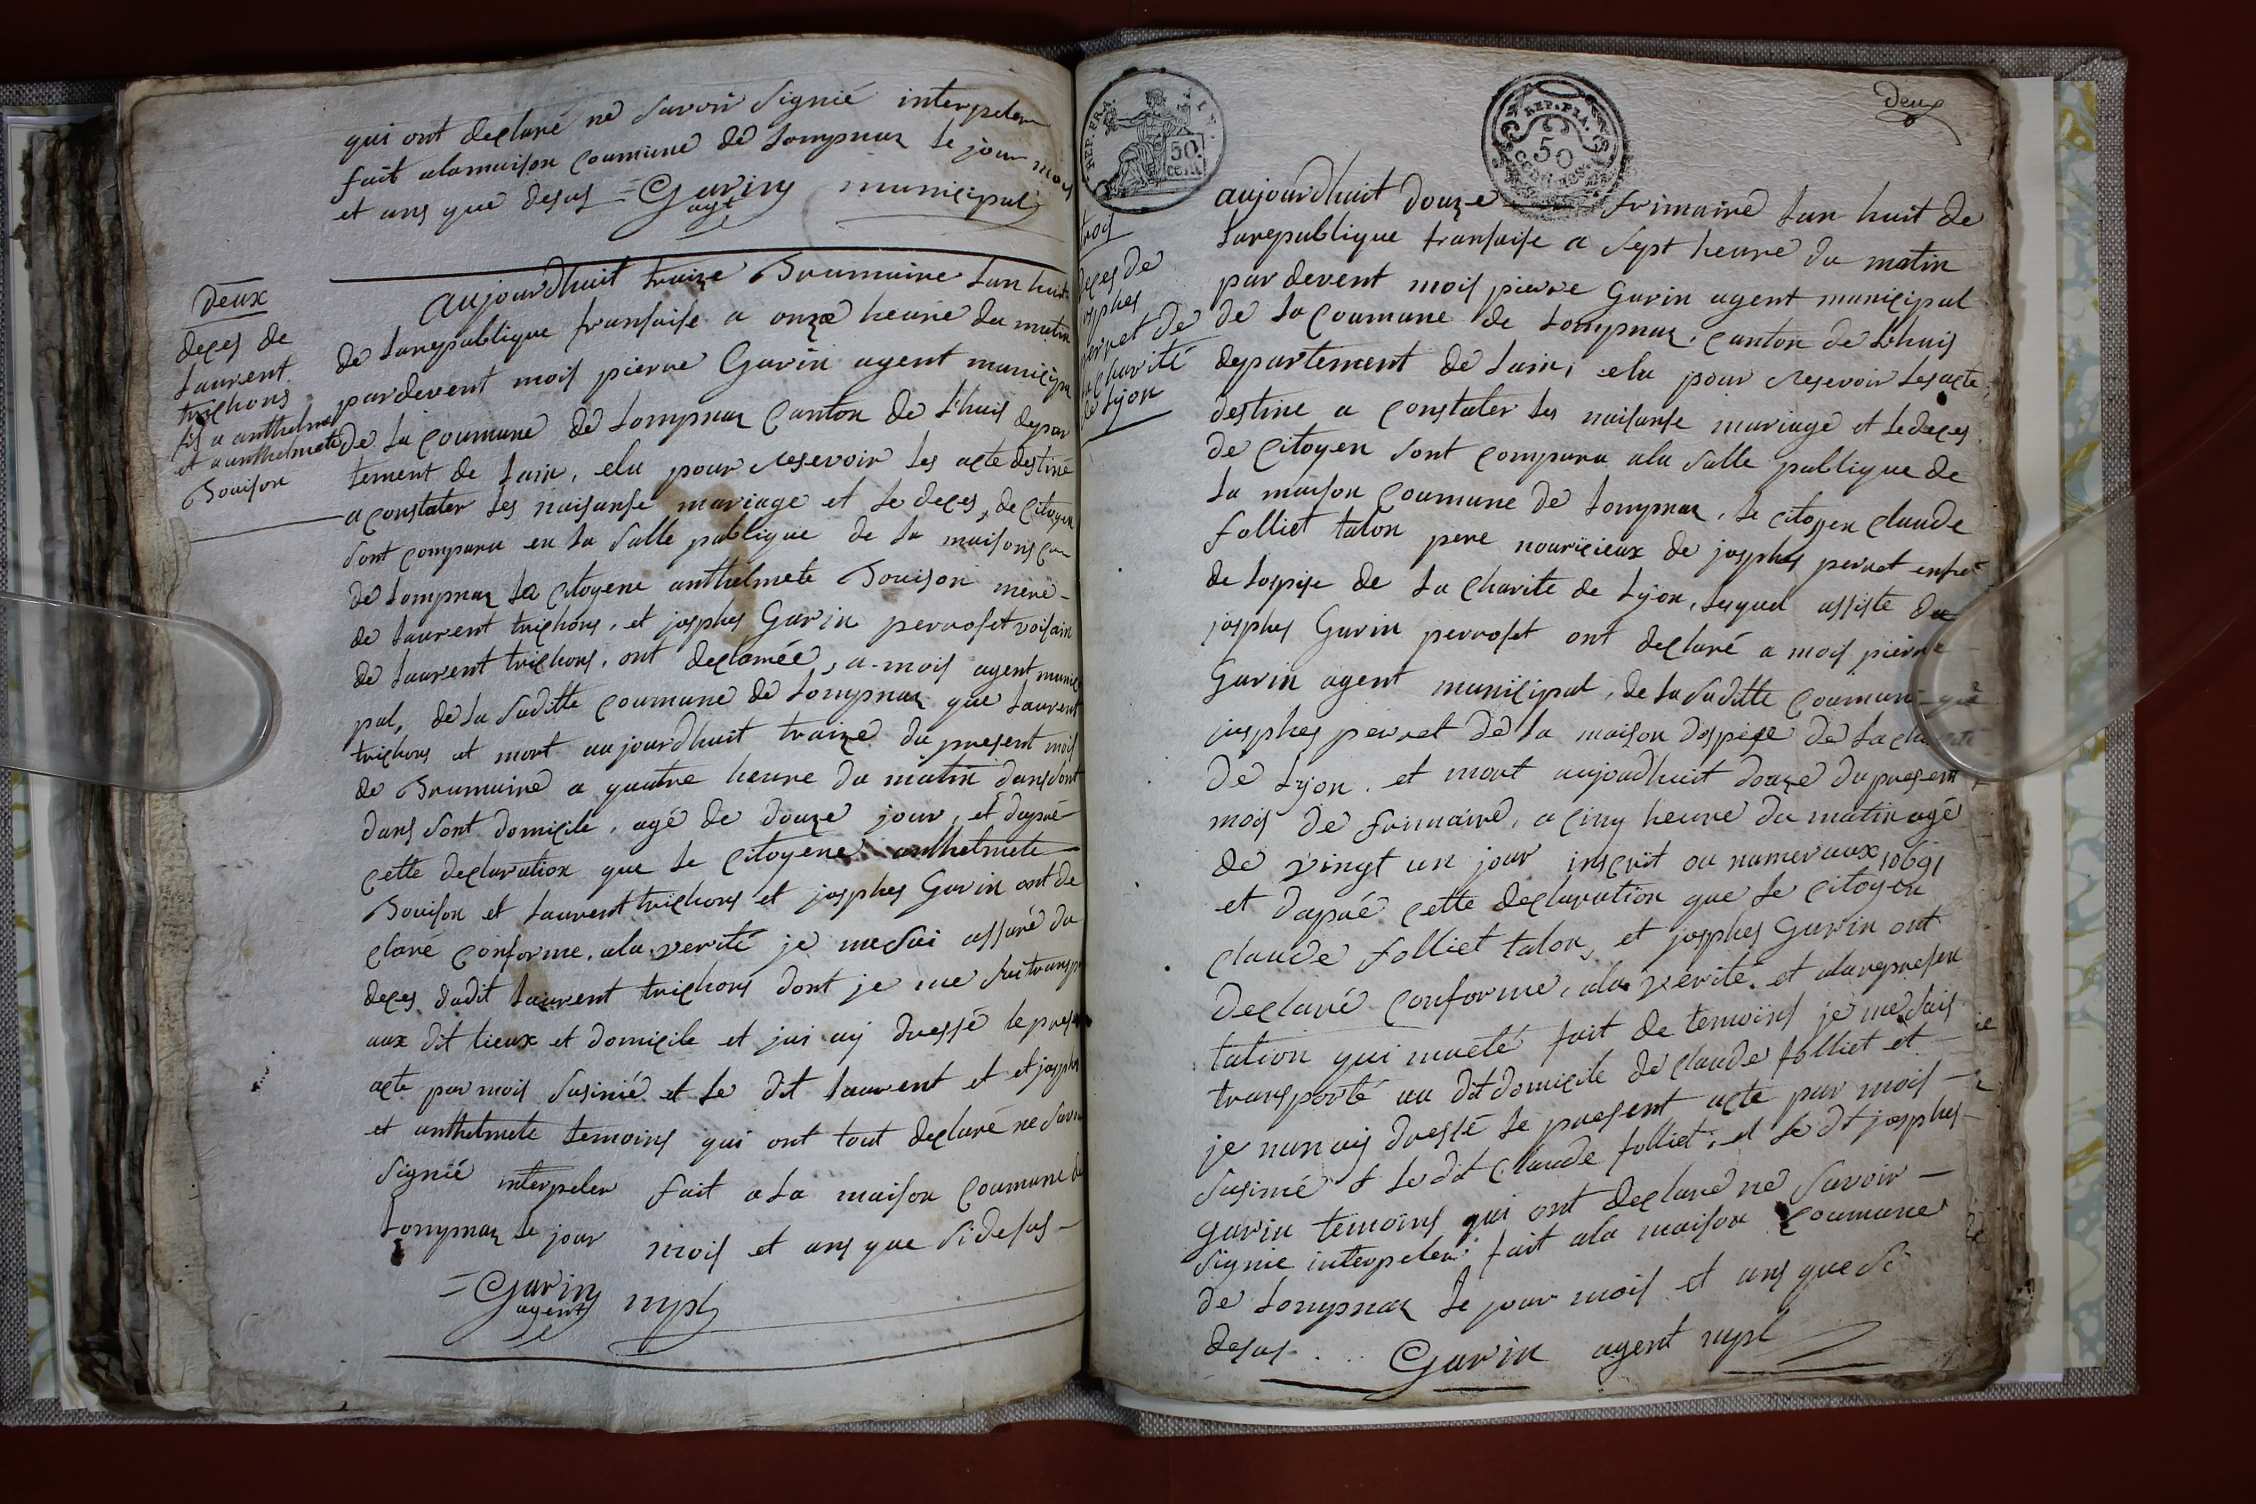 qui ont declaré ne savoir signié interpeler
fait alamaison coumune de Lompnaz le jour mois
et ans que desus = Garin municipal
agt
Deux
deces de
Laurent
trichons
fil a anthelme
et a anthelmete
Bouison
aujourdhuit traize Brumaire Lan huit
de Larepublique fransaise a onze heure du matin
pardevent mois pierre Garin agent municipa
de La coumune de Lompnaz Canton de Lhuis depar
tement de Lain, elu pour resevoir Les acte destiné
a constater Les naisanse mariage et Le deces de citoyen
sont comparu en La salle publique de La maison cou
de Lompnaz La Citoyene anthelmete Bouison mere
de Laurent trichons, et josphes Garin perroset voisain
de Laurent trichons, ont declamée, a mois agent munici
pal, de La suditte coumune de Lompnaz que Laurent
trichons et mort aujourdhuit traize du present mois
de Brumaire a quatre heure du matin dans sont
dans sont domicile, agé de douze jour, et dapré
cette declaration que Le citoyene anthelmete
Bouison et Laurent trichons et josphes Garin ont de
claré conforme, ala verité je me sui assuré du
deces dudit Laurent trichons dont je me sui transpo
aux dit lieux et domicile et jai aij dressé le prese
acte par mois susinié et Le dit Laurent et et josphes
et anthelmete temoins qui ont tout declaré ne savoi
signié interpeler fait a La maison coumune de
Lompnaz Le jour mois et ans que si desus
= Garin mpl
agent
deux
REP. FRA.
50.
cent.
REP. FRA.
50
CENTIMES
trois
deces de
josphes
perret de
La Charité
de Lijon
aujourdhuit douze frimaire Lan huit de
Larepublique fransaise a sept heure du matin
par devent mois pierre Garin agent municipal
de La Coumune de Lompnaz, Canton de Lhuis
departement de Lain, elu pour resevoir Les acte
destine a constater Les naisanse mariage et Le deces
de Citoyen sont comparu ala salle publique de
La maison Coumune de Lompnaz, Le citoyen claude
folliet talon pere nouricieux de josphes perret enfré
de Lospise de La Charite de Lijon, Lequel assiste du
josphes Garin perroset ont declaré a mois pierre
Garin agent municipal, de La suditte coumun que
josphes perret de La maison dospise de La charité
de Lijon et mort aujoudhuit douze du present
mois de frimaire, a cinq heure du matin agé
de vingt un jour inscrit ou numeraux 10691
et dapré cette declaration que Le citoyen
claude folliet talon, et josphes Garin ont
declaré conforme, ala verité et alarepresen
tation qui maeté fait de temoins je me suis
transporté au dit domicile de claude folliet et
je nan aij dressé Le present acte par mois
susinié & Le dit claude folliet, et Le dt josphes
Garin temoins qui ont declaré ne savoir
signie interpeler fait ala maison coumune
de Lompnaz Le jour mois et ans que si
desus. Garin agent mpl